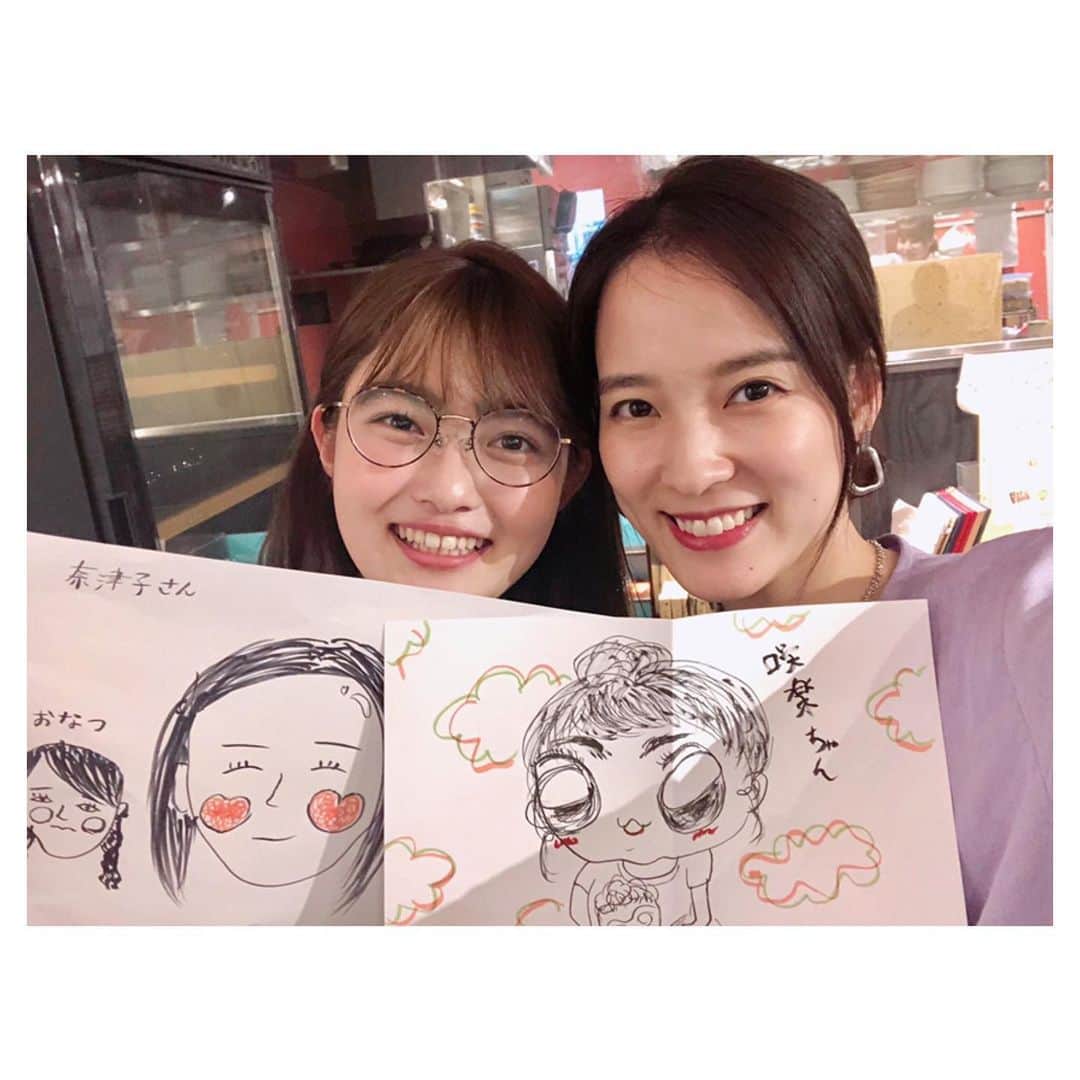 奈津子さん
おなつ
咲楽ちゃん